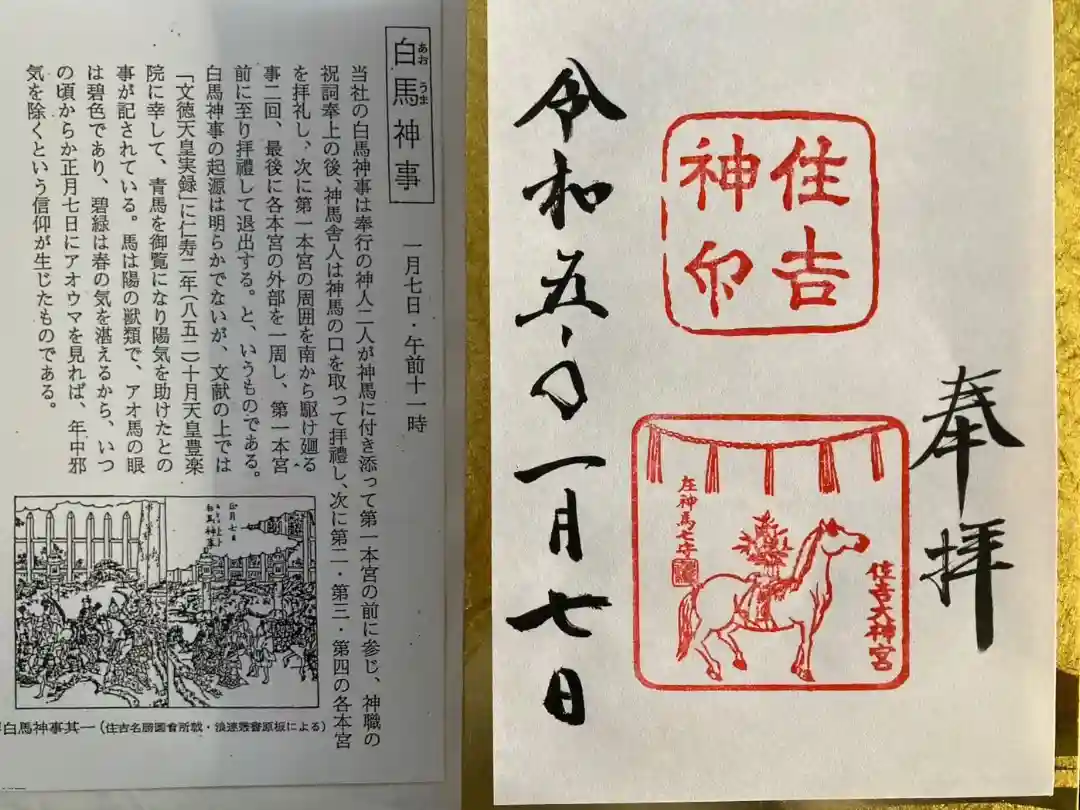 白馬神事
あお うま
一月七日・午前十一時
当社の白馬神事は奉行の神人二人が神馬に付き添って第一本宮の前に参じ、神職の
祝詞奉上の後、神馬舎人は神馬の口を取って拝禮し、次に第二・第三・第四の各本宮
を拝礼し、次に第一本宮の周囲を南から駆け廻る
事二回、最後に各本宮の外部を一周し、第一本宮
前に至り拝禮して退出する。と、いうものである。
白馬神事の起源は明らかでないが、文献の上では
「文徳天皇実録」に仁寿二年（八五二）十月天皇豊楽
院に幸して、青馬を御覧になり陽気を助けたとの
事が記されている。馬は陽の獣類で、アオ馬の眼
は碧色であり、碧緑は春の気を湛えるから、いつ
の頃からか正月七日にアオウマを見れば、年中邪
気を除くという信仰が生じたものである。
正月七日
白馬神事
白馬神事其一（住吉名勝圖會所載・浪速叢書原板による）
奉拝
住吉
神印
住吉大神宮
令和五年一月七日